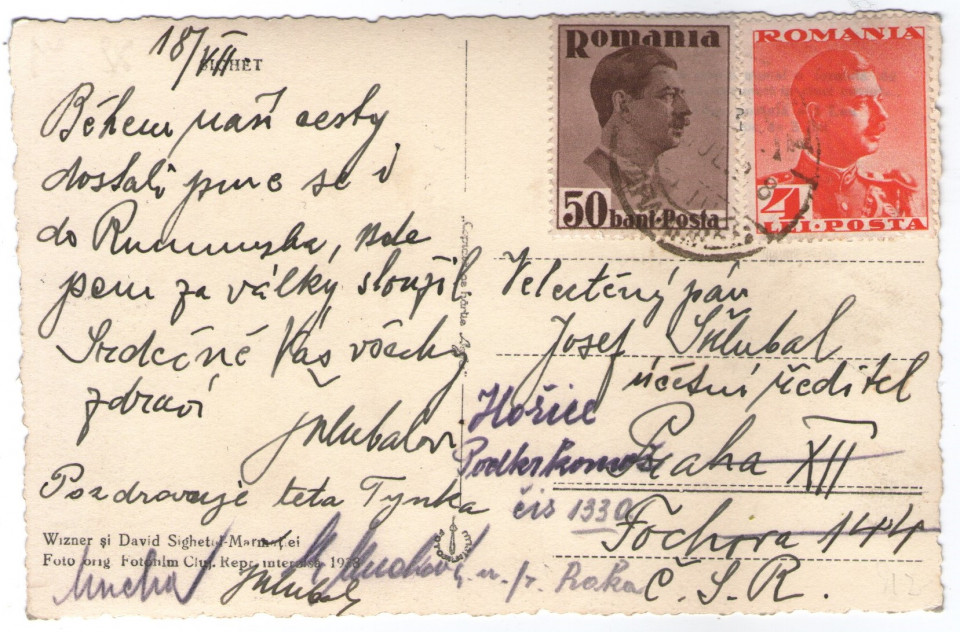 18/VII.
SIGHET
Během naší cesty
dostali jsme se i
do Rumunska, kde
jsem za války sloužil
Srdečně Vás všecky
zdraví
Pozdravuje teta Tynka
Wizner și David Sighetul-Marmației
Foto orig Fotofilm Cluj. Repr. interzisă 1938
Mucha
ROMANIA
50 bani·Posta
ROMANIA
4
LEI·POSTA
Velectěný pán
Josef
účetní ředitel
Praha XII
Fochova 144
Č. S. R.
Hořice
Podkrkonoší
čís 1330